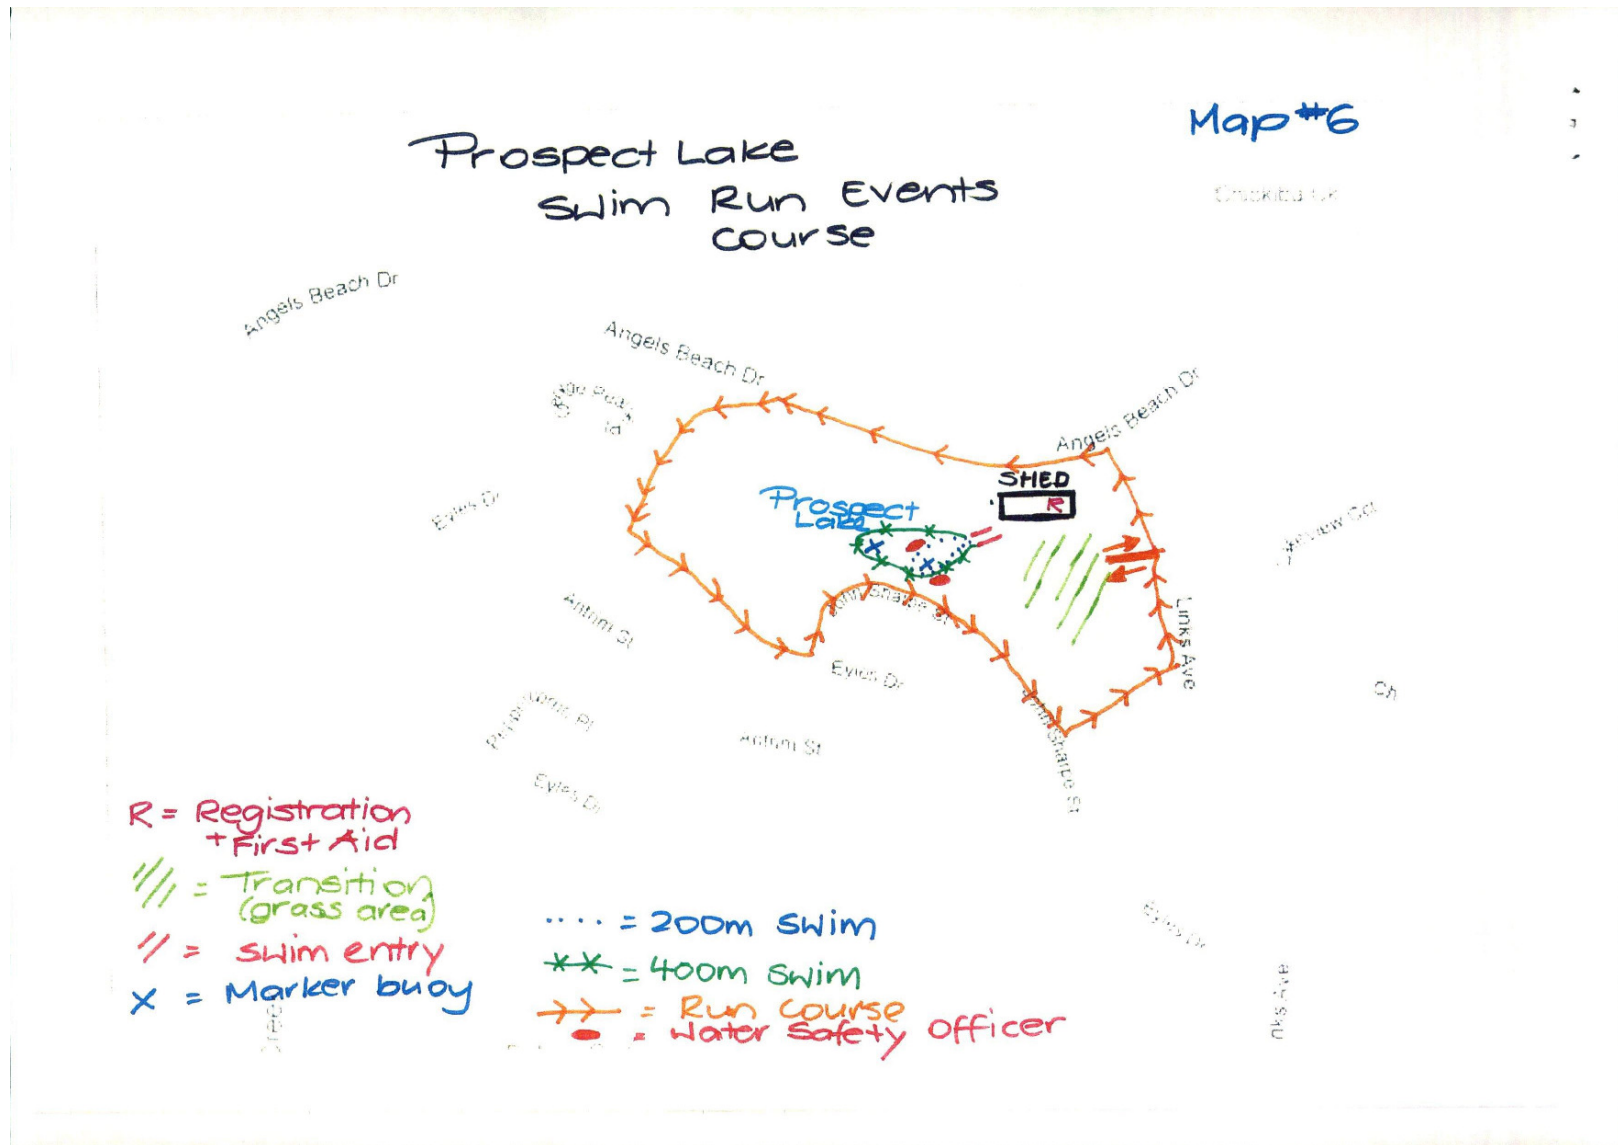 Map #6
Prospect Lake
Swim Run Events
Course
Angels Beach Dr
Angels Beach Dr
Angels Beach Dr
SHED
R
Prospect
Lake
Eyles Dr
John Sharpe St
Antrim St
Links Ave
Eyles Dr
Antrim St
John Sharpe St
Eyles Dr
R = Registration
+ First Aid
= Transition
(grass area)
// = Swim entry
x = Marker buoy
.... = 200m Swim
= 400m Swim
= Run Course
= Water Safety Officer
Eyles Dr